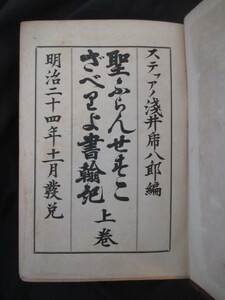 ステファノ浅井乕八郎編
聖ふらんせすこ
ざべりよ書翰記
上巻
明治二十四年十一月發兌